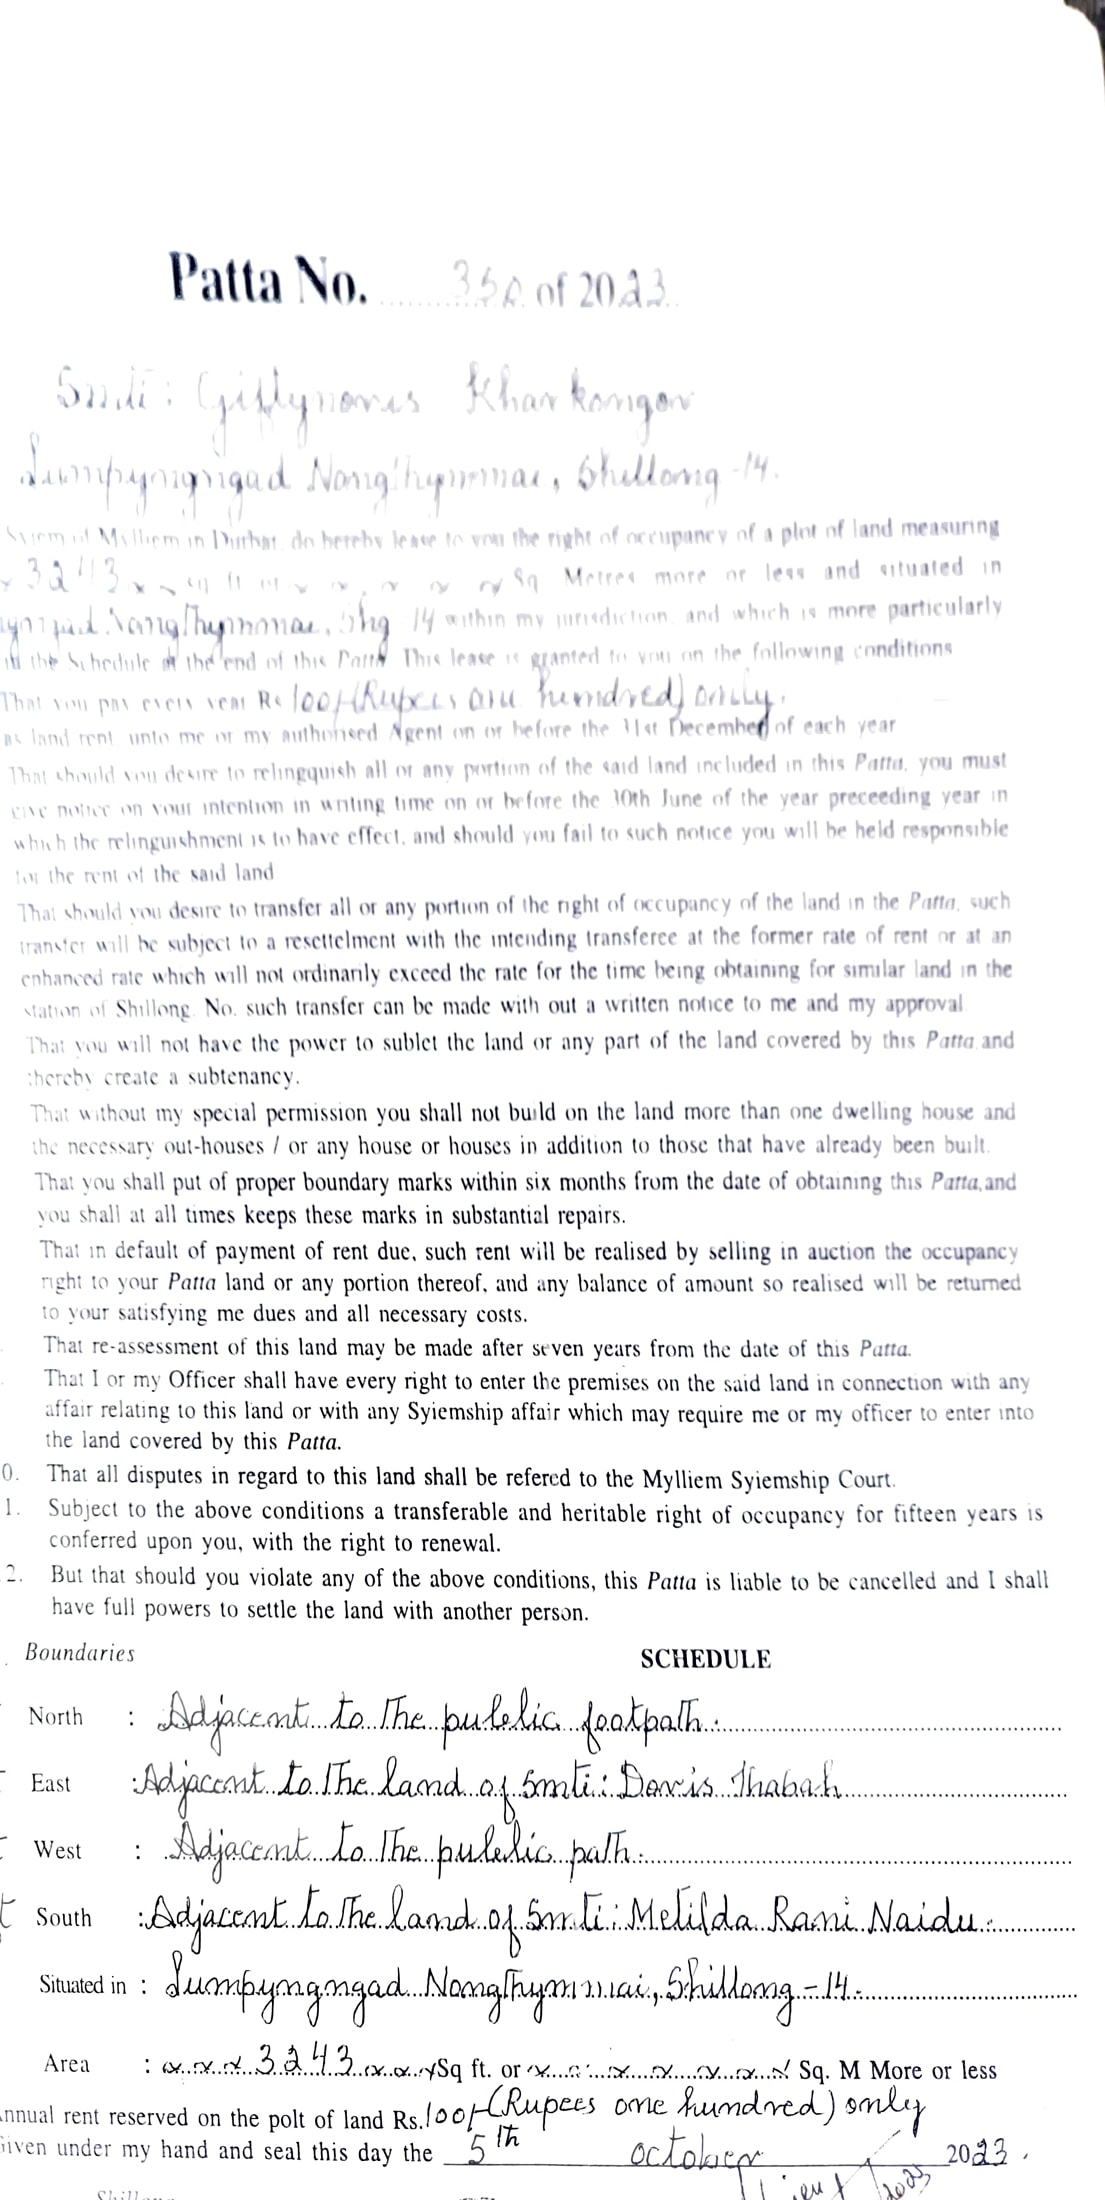 Patta No. 350 of 2023
Smti: Giflynoris Kharkongor
Lumpyngngad Nongthymmai, Shillong -14.
Syiem of Mylliem in Durbar, do hereby lease to you the right of occupancy of a plot of land measuring
3243 sq ft or Sq Metres more or less and situated in
Nongthymmai, Shg 14 within my jurisdiction, and which is more particularly
in the Schedule at the end of this Patta This lease is granted to you on the following conditions
That you pay every year Rs 100/-(Rupees one hundred) only.
as land rent unto me or my authorised Agent on or before the 31st December of each year
That should you desire to relingquish all or any portion of the said land included in this Patta, you must
give notice on your intention in writing time on or before the 30th June of the year preceeding year in
which the relinguishment is to have effect, and should you fail to such notice you will be held responsible
for the rent of the said land
That should you desire to transfer all or any portion of the right of occupancy of the land in the Patta, such
transfer will be subject to a resettelment with the intending transferee at the former rate of rent or at an
enhanced rate which will not ordinarily exceed the rate for the time being obtaining for similar land in the
station of Shillong. No. such transfer can be made with out a written notice to me and my approval
That you will not have the power to sublet the land or any part of the land covered by this Patta and
thereby create a subtenancy.
That without my special permission you shall not build on the land more than one dwelling house and
the necessary out-houses / or any house or houses in addition to those that have already been built.
That you shall put of proper boundary marks within six months from the date of obtaining this Patta,and
you shall at all times keeps these marks in substantial repairs.
That in default of payment of rent due, such rent will be realised by selling in auction the occupancy
right to your Patta land or any portion thereof, and any balance of amount so realised will be returned
to your satisfying me dues and all necessary costs.
That re-assessment of this land may be made after seven years from the date of this Patta.
That I or my Officer shall have every right to enter the premises on the said land in connection with any
affair relating to this land or with any Syiemship affair which may require me or my officer to enter into
the land covered by this Patta.
0. That all disputes in regard to this land shall be refered to the Mylliem Syiemship Court.
1. Subject to the above conditions a transferable and heritable right of occupancy for fifteen years is
conferred upon you, with the right to renewal.
2. But that should you violate any of the above conditions, this Patta is liable to be cancelled and I shall
have full powers to settle the land with another person.
Boundaries SCHEDULE
North : Adjacent to the public footpath.
East : Adjacent to the land of Smti: Doris Thabah
West : Adjacent to the public path.
South : Adjacent to the land of Smti: Melilda Rani Naidu.
Situated in : Lumpyngngad Nongthymmai, Shillong -14.
Area : x x x 3243 x x x Sq ft. or x x x x x x Sq. M More or less
Annual rent reserved on the polt of land Rs.100/-(Rupees one hundred) only
Given under my hand and seal this day the 5th october 2023.
Shillong